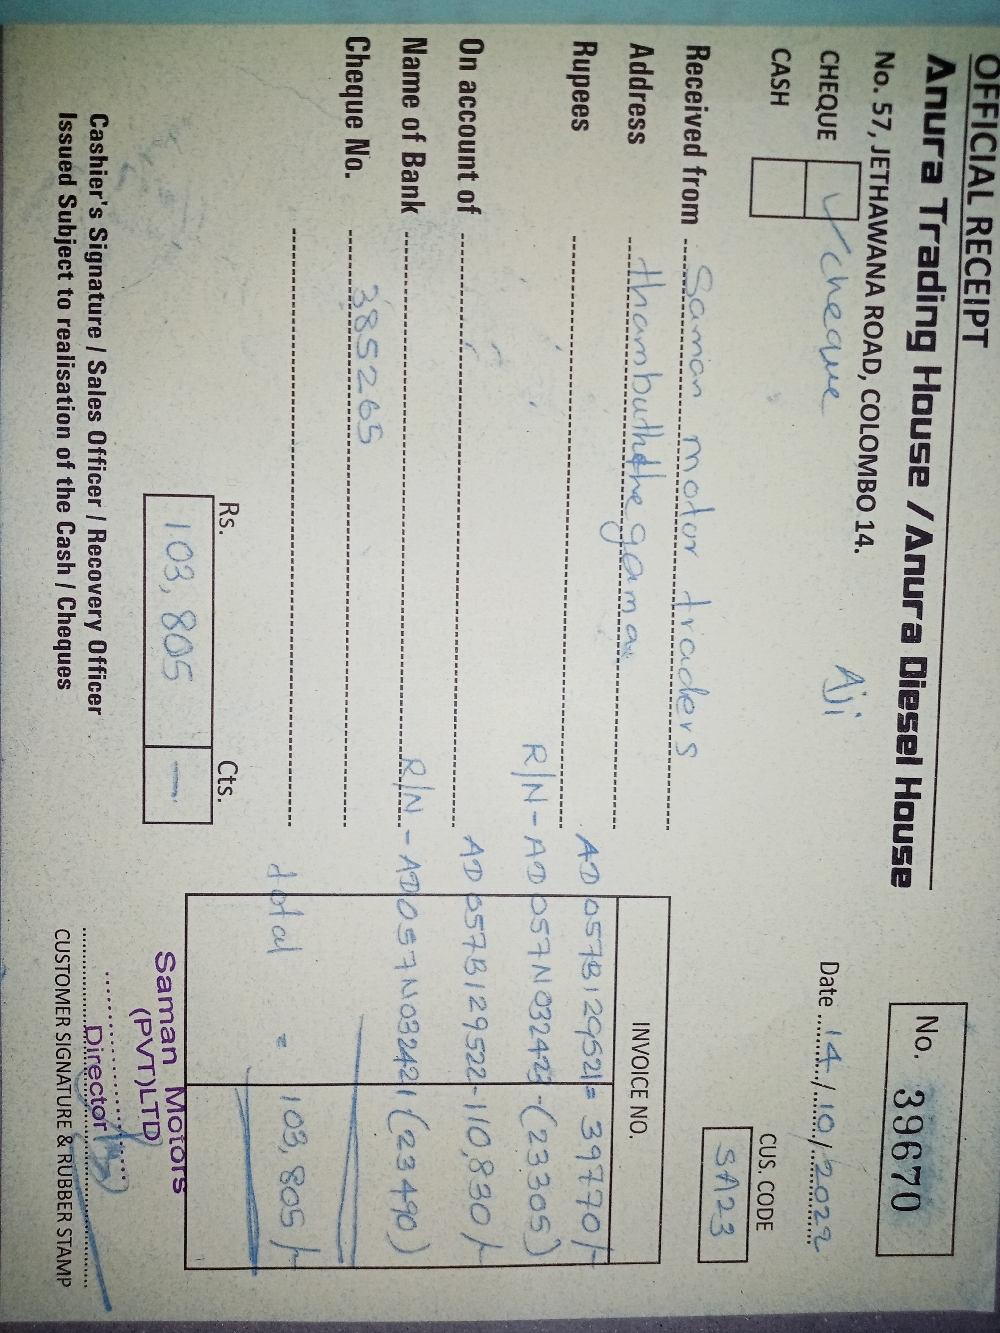 OFFICIAL RECEIPT
Anura Trading House / Anura Diesel House
No. 57, JETHAWANA ROAD, COLOMBO 14.
No. 39670
CHEQUE ✓ cheque
Aji
Date 14/10/2022
CASH
CUS. CODE
SA23
Received from Saman motor traders
Address thambuththegama
INVOICE NO.
Rupees
AD057B129521= 39770/-
R/N-AD057N032423-(23305)
On account of
AD057B129522-110,830/-
Name of Bank
R/N-AD057N032421(23490)
Cheque No. 385265
total = 103,805/-
Rs. Cts.
103,805 —
Saman Motors
(PVT)LTD
Director
Cashier's Signature / Sales Officer / Recovery Officer
Issued Subject to realisation of the Cash / Cheques
CUSTOMER SIGNATURE & RUBBER STAMP